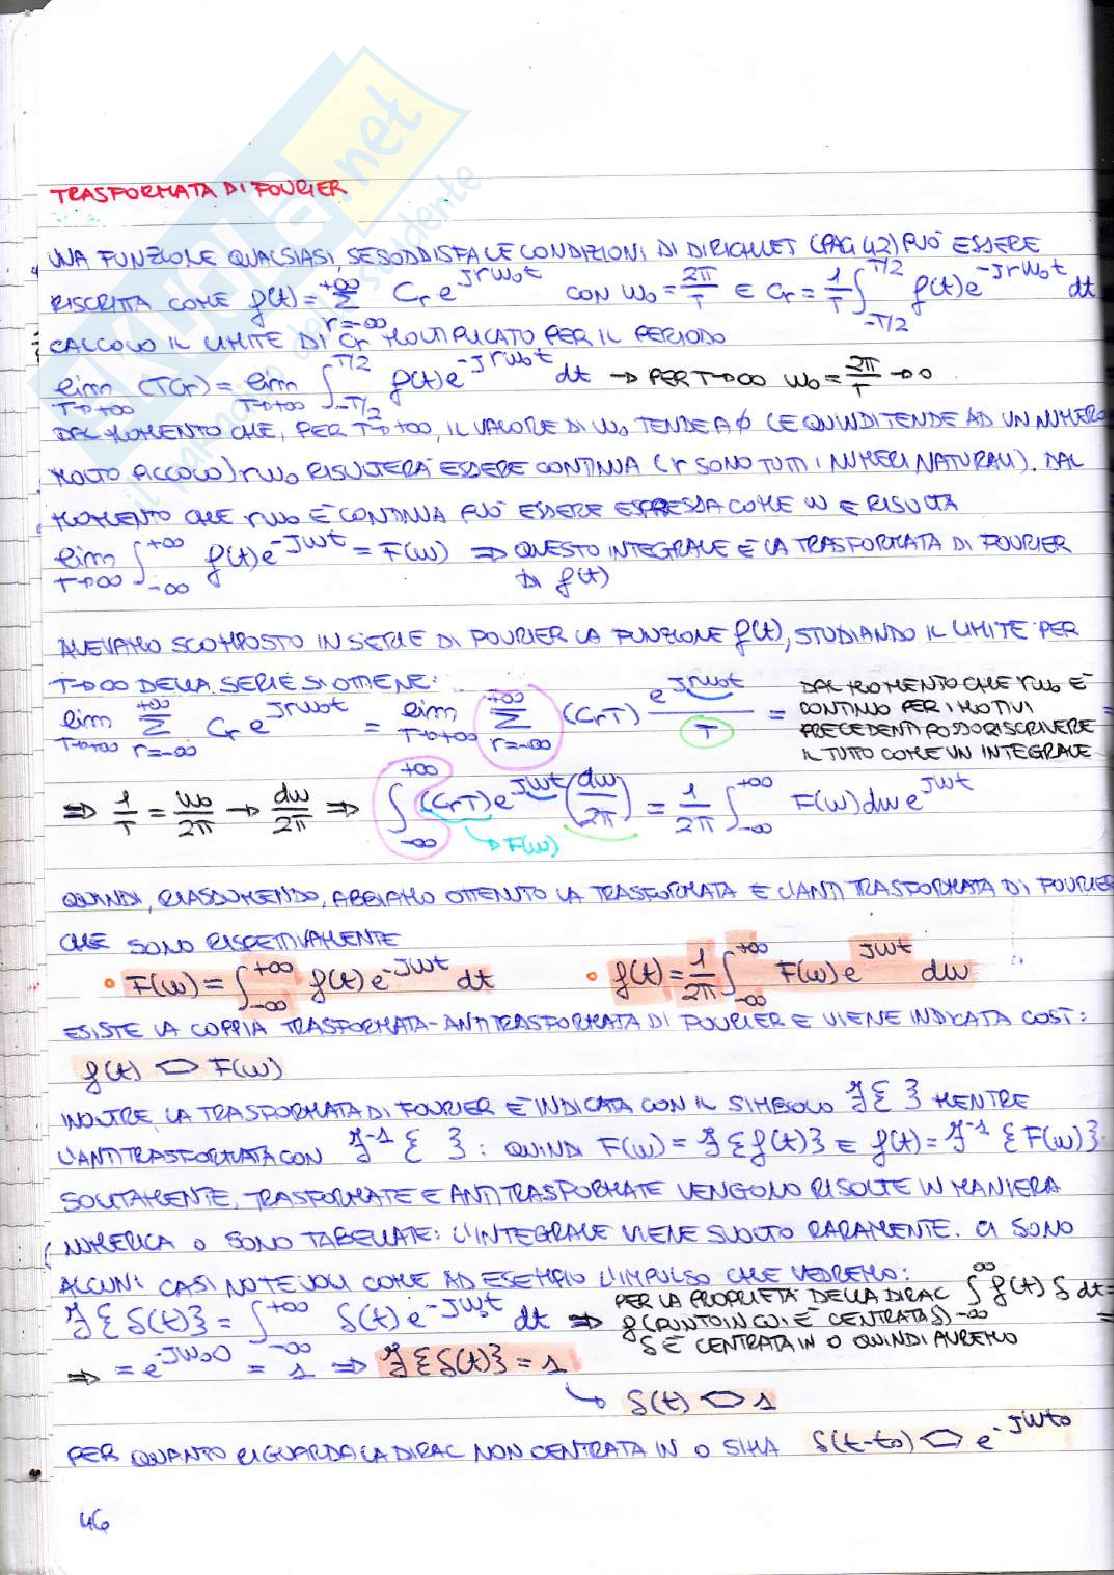 TRASFORMATA DI FOURIER
UNA FUNZIONE QUALSIASI, SE SODDISFA LE CONDIZIONI DI DIRICHLET (PAG 42) PUÒ ESSERE
RISCRITTA COME f(t) = Σ_{r=-∞}^{+∞} Cr e^{jrω₀t} CON ω₀ = 2π/T E Cr = 1/T ∫_{-T/2}^{T/2} f(t) e^{-jrω₀t} dt
CALCOLO IL LIMITE DI Cr MOLTIPLICATO PER IL PERIODO
lim_{T→+∞} (TCr) = lim_{T→+∞} ∫_{-T/2}^{T/2} f(t) e^{-jrω₀t} dt → PER T→∞ ω₀ = 2π/T → 0
DAL MOMENTO CHE, PER T→+∞, IL VALORE DI ω₀ TENDE A ∅ (E QUINDI TENDE AD UN NUMERO
MOLTO PICCOLO) rω₀ RISULTERÀ ESSERE CONTINUA (r SONO TUTTI I NUMERI NATURALI). DAL
MOMENTO CHE rω₀ È CONTINUA PUÒ ESSERE ESPRESSA COME ω E RISULTA
lim_{T→∞} ∫_{-∞}^{+∞} f(t) e^{-jωt} = F(ω) ⇒ QUESTO INTEGRALE È LA TRASFORMATA DI FOURIER
DI f(t)
AVEVAMO SCOMPOSTO IN SERIE DI FOURIER LA FUNZIONE f(t), STUDIANDO IL LIMITE PER
T→∞ DELLA SERIE SI OTTIENE:
lim_{T→+∞} Σ_{r=-∞}^{+∞} Cr e^{jrω₀t} = lim_{T→+∞} Σ_{r=-∞}^{+∞} (CrT) e^{jrω₀t}/T =
DAL MOMENTO CHE rω₀ È
CONTINUO PER I MOTIVI
PRECEDENTI POSSO RISCRIVERE
IL TUTTO COME UN INTEGRALE
=
⇒ 1/T = ω₀/2π → dω/2π ⇒ ∫_{-∞}^{+∞} (CrT) e^{jωt} (dω/2π) = 1/2π ∫_{-∞}^{+∞} F(ω) dω e^{jωt}
→ F(ω)
QUINDI, RIASSUMENDO, ABBIAMO OTTENUTO LA TRASFORMATA E L'ANTITRASFORMATA DI FOURIER
CHE SONO RISPETTIVAMENTE
• F(ω) = ∫_{-∞}^{+∞} f(t) e^{-jωt} dt • f(t) = 1/2π ∫_{-∞}^{+∞} F(ω) e^{jωt} dω
ESISTE LA COPPIA TRASFORMATA-ANTITRASFORMATA DI FOURIER E VIENE INDICATA COSÌ:
f(t) ⇔ F(ω)
INOLTRE, LA TRASFORMATA DI FOURIER È INDICATA CON IL SIMBOLO ℱ{ } MENTRE
L'ANTITRASFORMATA CON ℱ⁻¹{ } : QUINDI F(ω) = ℱ{f(t)} E f(t) = ℱ⁻¹{F(ω)}
SOLITAMENTE, TRASFORMATE E ANTITRASFORMATE VENGONO RISOLTE IN MANIERA
NUMERICA O SONO TABELLATE: L'INTEGRALE VIENE SVOLTO RARAMENTE. CI SONO
ALCUNI CASI NOTEVOLI COME AD ESEMPIO L'IMPULSO CHE VEDREMO:
ℱ{δ(t)} = ∫_{-∞}^{+∞} δ(t) e^{-jωt} dt ⇒
PER LA PROPRIETÀ DELLA DIRAC ∫_{-∞}^{∞} f(t) δ dt =
f(PUNTO IN CUI È CENTRATA δ) =
δ È CENTRATA IN 0 QUINDI AVREMO
⇒ = e^{-jω₀0} = 1 ⇒ ℱ{δ(t)} = 1
↳ δ(t) ⇔ 1
PER QUANTO RIGUARDA LA DIRAC NON CENTRATA IN 0 SI HA δ(t-t₀) ⇔ e^{-jωt₀}
46
SKUOLA.net
il paradiso dello studente